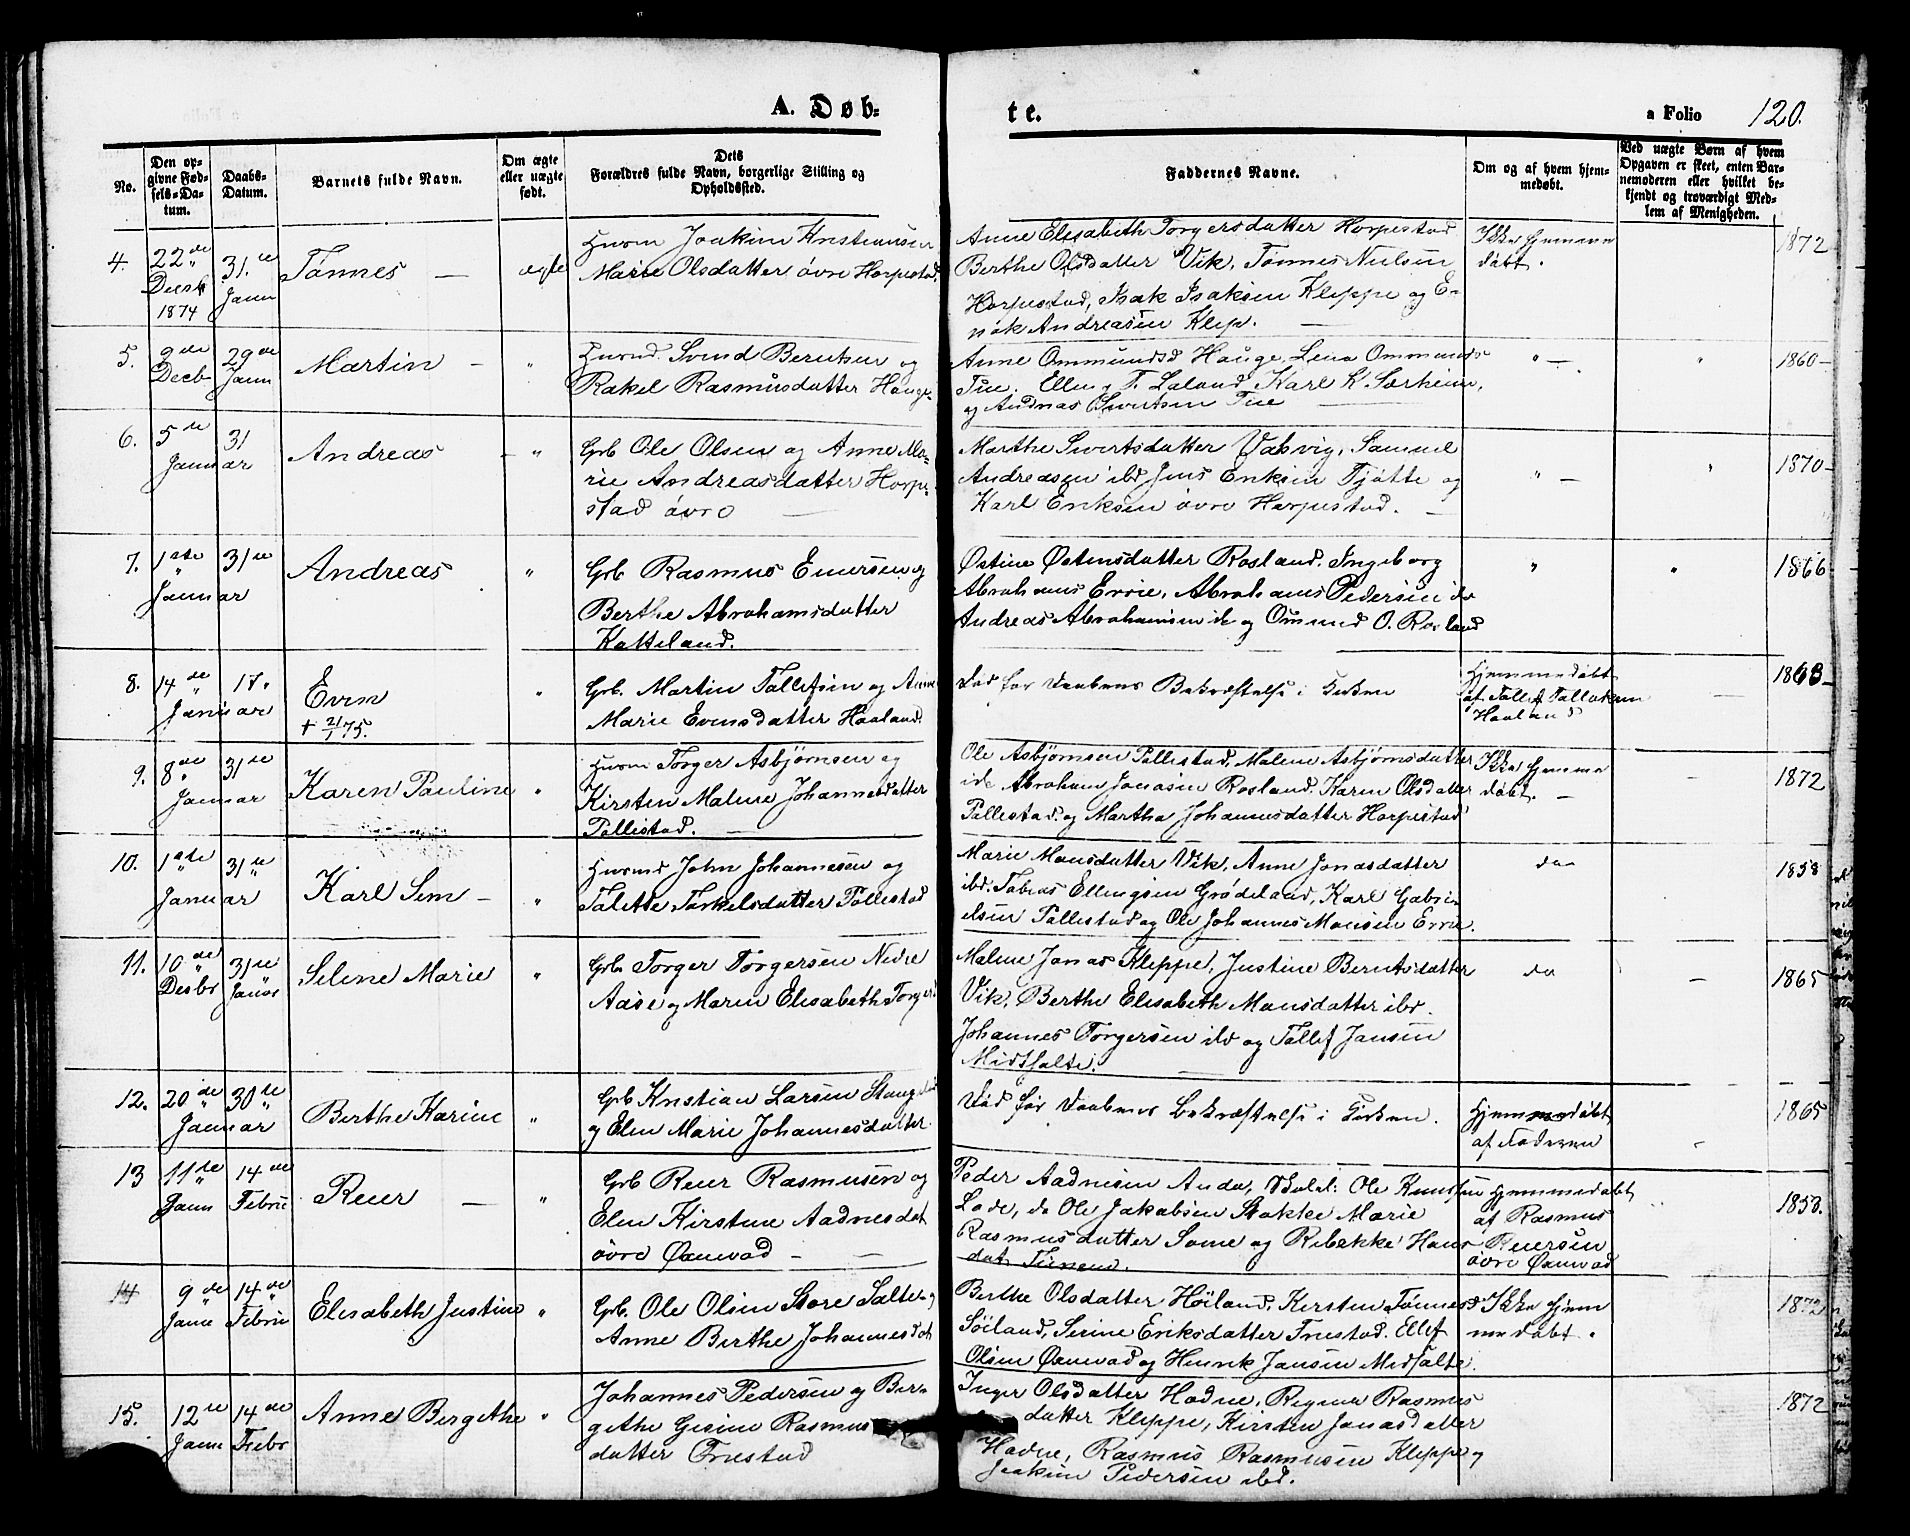 A. Døb-
te.
a Folio 120.
No.
Den op-
givne Fød-
sels-Da-
tum.
Daabs-
Datum.
Barnets fulde Navn.
Om ægte
eller uægte
født.
Dets
Forældres fulde Navn, borgerlige Stilling og
Opholdssted.
Faddernes Navne.
Om og af hvem hjem-
medøbt.
Ved uægte Børn af hvem
Opgaven er skeet, enten Bar-
nemoderen eller hvilket be-
kjendt og troværdigt Med-
lem af Menigheden.
4. 22de Decb 1874
31.te Janu
Tønnes —
ægte
Husm Joakim Kristiansen
Marie Olsdatter, øvre Horpestad.
Anne Elisabeth Torgersdatter Horpestad
Berthe Olsdatter Vik, Tønnes Nielsen
Horpestad, Isak Isaksen Kleppe og E-
nok Andreasen Klep. —
Ikke hjemme
døbt.
1872
5. 9de Decb
29de Janu
Martin —
"
Husmd. Svend Berntsen og
Rakel Rasmusdatter Hauge.
Anne Ommundsd Hauge, Lena Ommunds
Tue. Ellen T. Laland, Karl K. Særheim,
og Audnas Sivertsen Tue —
" —
"
1860 —
6. 5te Januar
31
Andreas
— "
Grb Ole Olsen og Anne Ma-
rie Andreasdatter Horpe-
stad øvre —
Marthe Sivertsdatter Vasvig, Samuel
Andreasen ibd Jens Eriksen Tjøtte og
Karl Eriksen øvre Horpestad. —
" —
"
1870 —
7. 1ste Januar
31te
Andreas
"
Grb Rasmus Einersen og
Berthe Abrahamsdatter
Katteland.
Østine Østensdatter Rosland. Ingeborg
Abrahams Ervie, Abrahams Pedersen ibd
Andreas Abrahamsen ib og Omund O. Rosland
"
"
1866 —
8. 14de Januar
17.
Even
+ 21/1 75.
"
Grb. Martin Tallefsen og Anne
Marie Evensdatter Haaland.
Død før Daabens Bekræftelse i Kirken
Hjemmedøbt
af Tallef Tallaksen
Haaland
1868 —
9. 8de Januar
31te
Karen Pauline
"
Husm Torger Asbjørnsen og
Kirsten Malene Johannesdatter
Pollestad. —
Ole Asbjørnsen Pollestad, Malene Asbjørnsdatter
ibd. Abraham Jonasen Rosland. Karen Olsdatter
Pollestad og Martha Johannesdatter Horpestad
Ikke hjemme
døbt. —
—
1872
10. 1ste Januar
31te
Karl Sem —
"
Husmd John Johannesen og
Talette Torkelsdatter Pollestad
Marie Monsdatter Vik, Anne Jonasdatter
ibd. Tobias Ellingsen Grødeland, Karl Gabri-
elsen Pollestad og Ole Johannes Monsen Ervie.
do
1858
11. 10de Desbr
31te Januar
Seline Marie
"
Grb. Torger Torgersen Nedre
Aase og Maren Elisabeth Torgersd
Malene Jonas Kleppe, Justine Berntsdatter
Vik, Berthe Elisabeth Monsdatter ibd.
Johannes Torgersen ibd og Tollef Jansen
Midtsalte.
do
—
1865
12. 20de Januar
30te
Berthe Karine
"
Grb Kristian Larsen Stangeland
og Elen Marie Johannesdatter.
Død før Daabens Bekræftelse i Kirken.
Hjemmedøbt
af Faderen
—
1865
13 11te Janu
14de Febru
Reier —
"
Grb Reier Rasmusen og
Elen Kirstine Aadnesdat
øvre Øxnevad —
Peder Aadnesen Anda, Ole Knudsen
Lode, do Ole Jakobsen Stokke Marie
Rasmusdatter Some og Rebekke Hans
dat
Hjemmedøbt
af Rasmus
Reiersen
øvre Øxnevad
"
1853.
14 9de Janu
14de Febru
Elisabeth Justine
"
Grb. Ole Olsen Store Salte og
Anne Berthe Johannesdat
Berthe Olsdatter Høiland, Kirsten Tønnesd
Søiland, Serine Eriksdatter Friestad. Ellef
Olsen Øxnevad og Henrik Jansen Midsalte.
Ikke hjem
medøbt.
1872
15. 12te Janu
14de Febr
Anne Bergithe
"
Johannes Pedersen og Ber-
githe Gesine Rasmus
datter Friestad
Inger Olsdatter Hodne, Regina Rasmus
datter Kleppe, Kirsten Jonasdatter
Hodne, Rasmus Rasmusen Kleppe og
Joakim Pedersen ibd.
1872